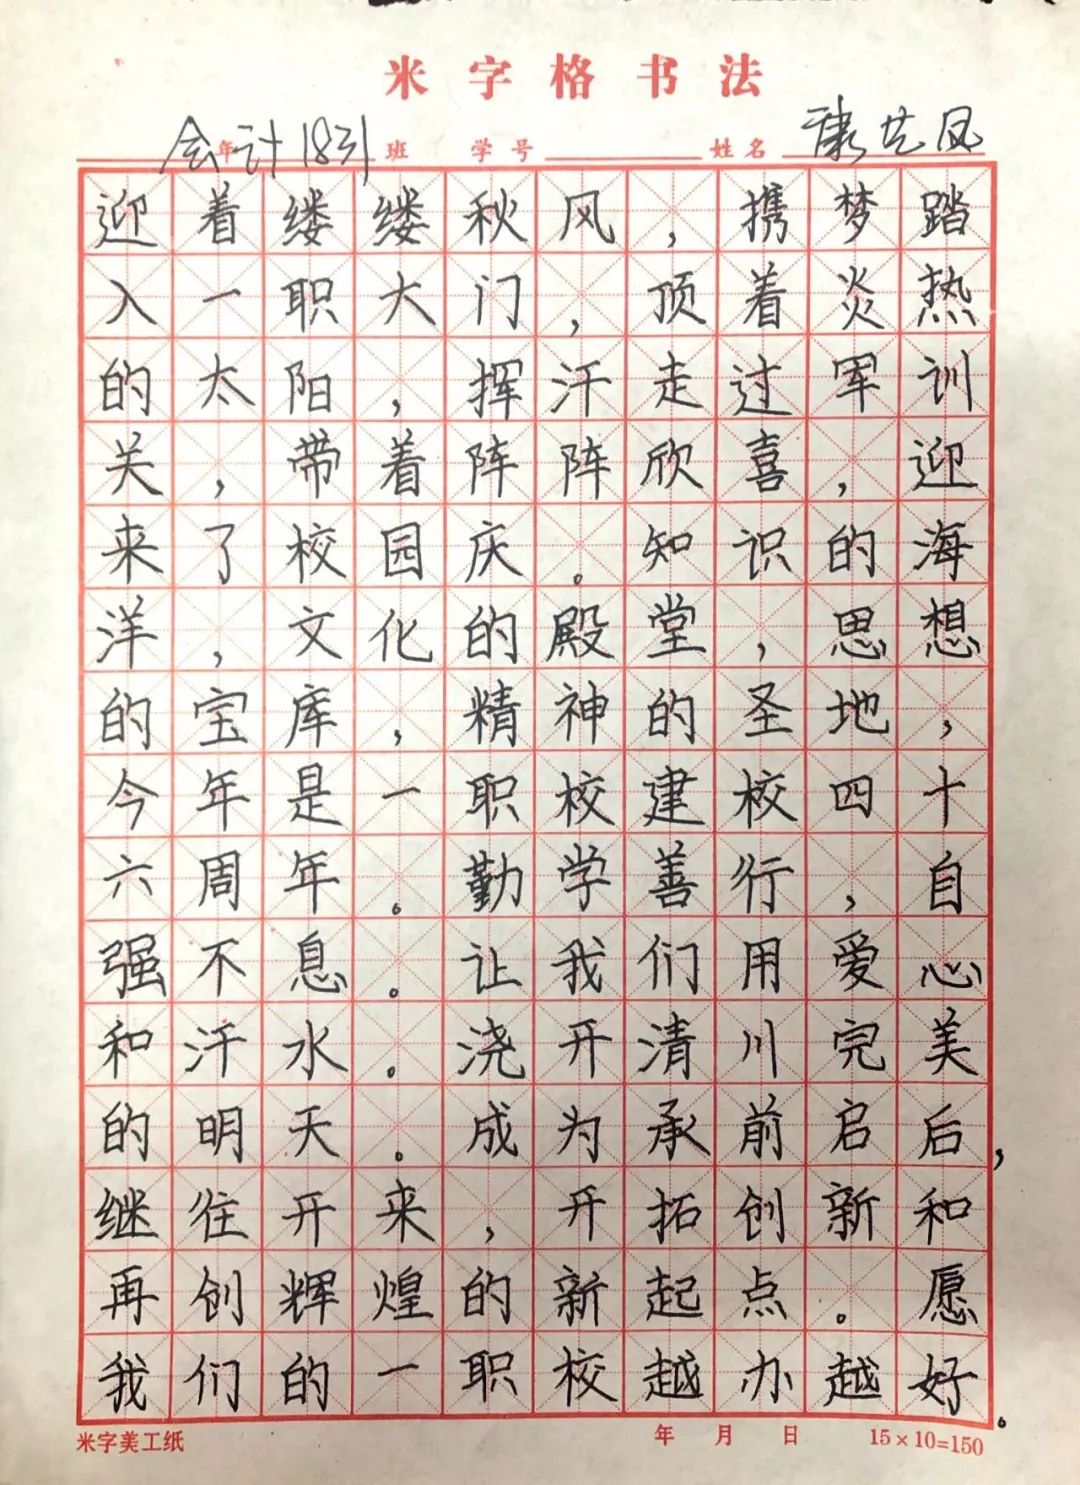 米字格书法
会计1831 年 班 学号 姓名 康艺凤
迎着缕缕秋风，携梦踏
入一职大门，顶着炎热
的太阳，挥汗走过军训
关，带着阵阵欣喜，迎
来了校园庆。知识的海
洋，文化的殿堂，思想
的宝库，精神的圣地，
今年是一职校建校四十
六周年。勤学善行，自
强不息。让我们用爱心
和汗水。浇开清川完美
的明天。成为承前启后，
继往开来，开拓创新和
再创辉煌的新起点。愿
我们的一职校越办越好。
米字美工纸 年 月 日 15×10=150